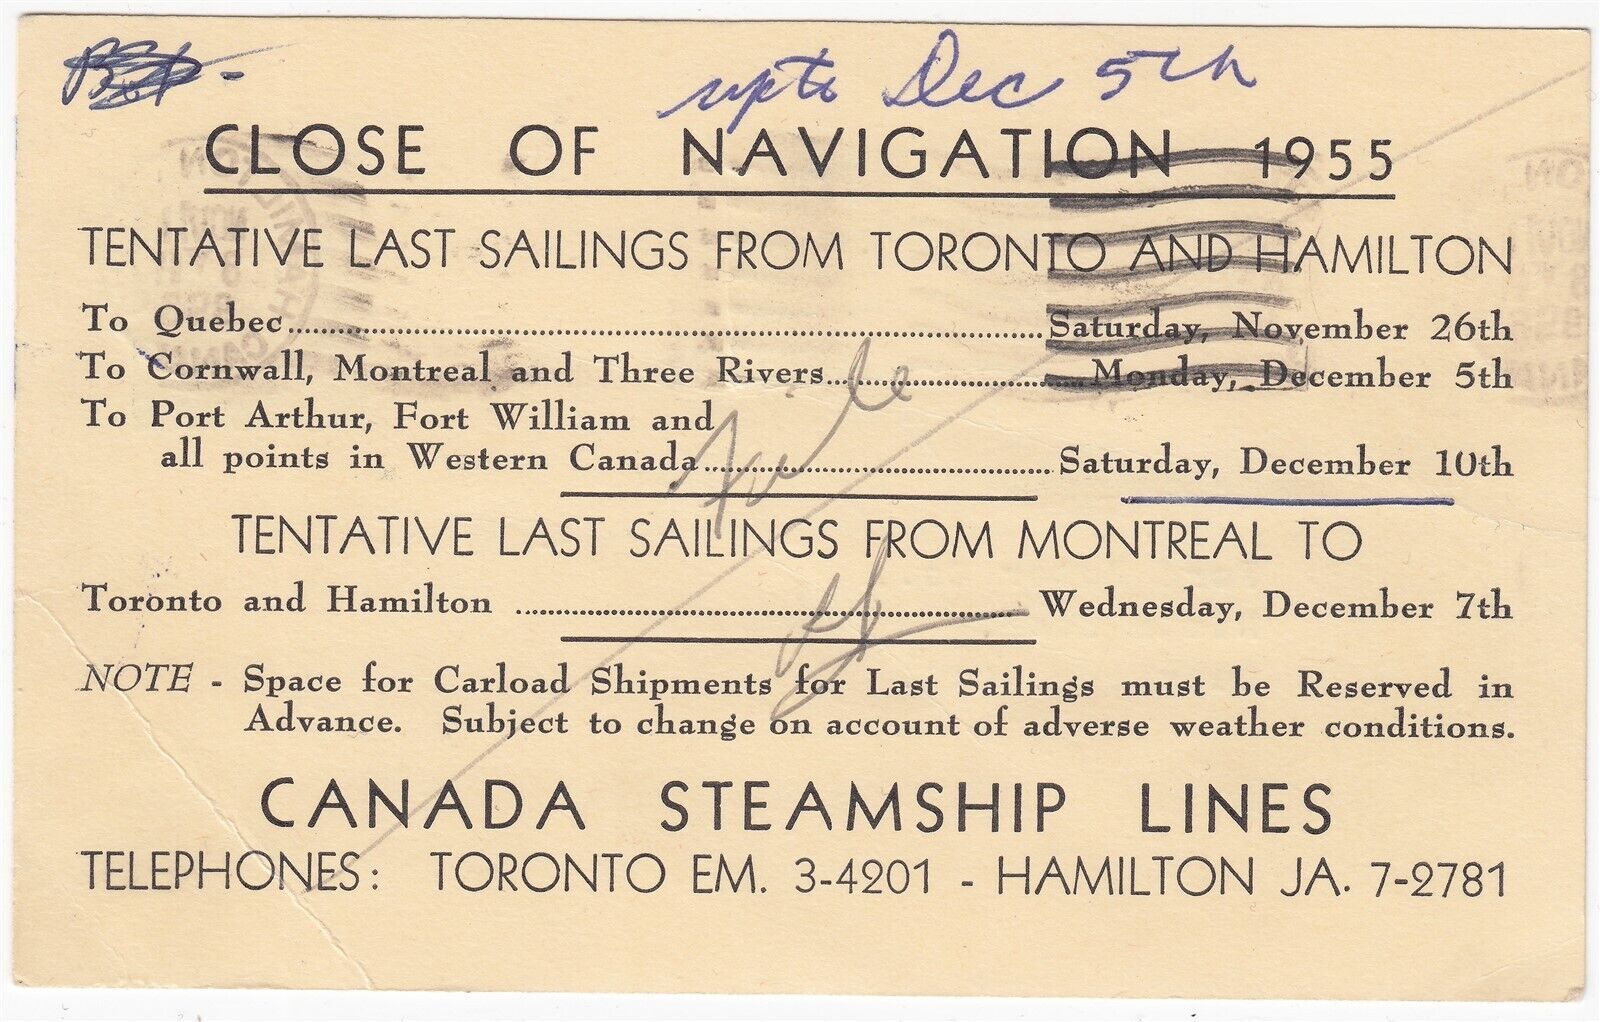 upto Dec 5th
CLOSE OF NAVIGATION 1955
TENTATIVE LAST SAILINGS FROM TORONTO AND HAMILTON
To Quebec........Saturday, November 26th
To Cornwall, Montreal and Three Rivers........Monday, December 5th
To Port Arthur, Fort William and
all points in Western Canada........Saturday, December 10th
TENTATIVE LAST SAILINGS FROM MONTREAL TO
Toronto and Hamilton ........ Wednesday, December 7th
NOTE - Space for Carload Shipments for Last Sailings must be Reserved in
Advance. Subject to change on account of adverse weather conditions.
CANADA STEAMSHIP LINES
TELEPHONES: TORONTO EM. 3-4201 - HAMILTON JA. 7-2781